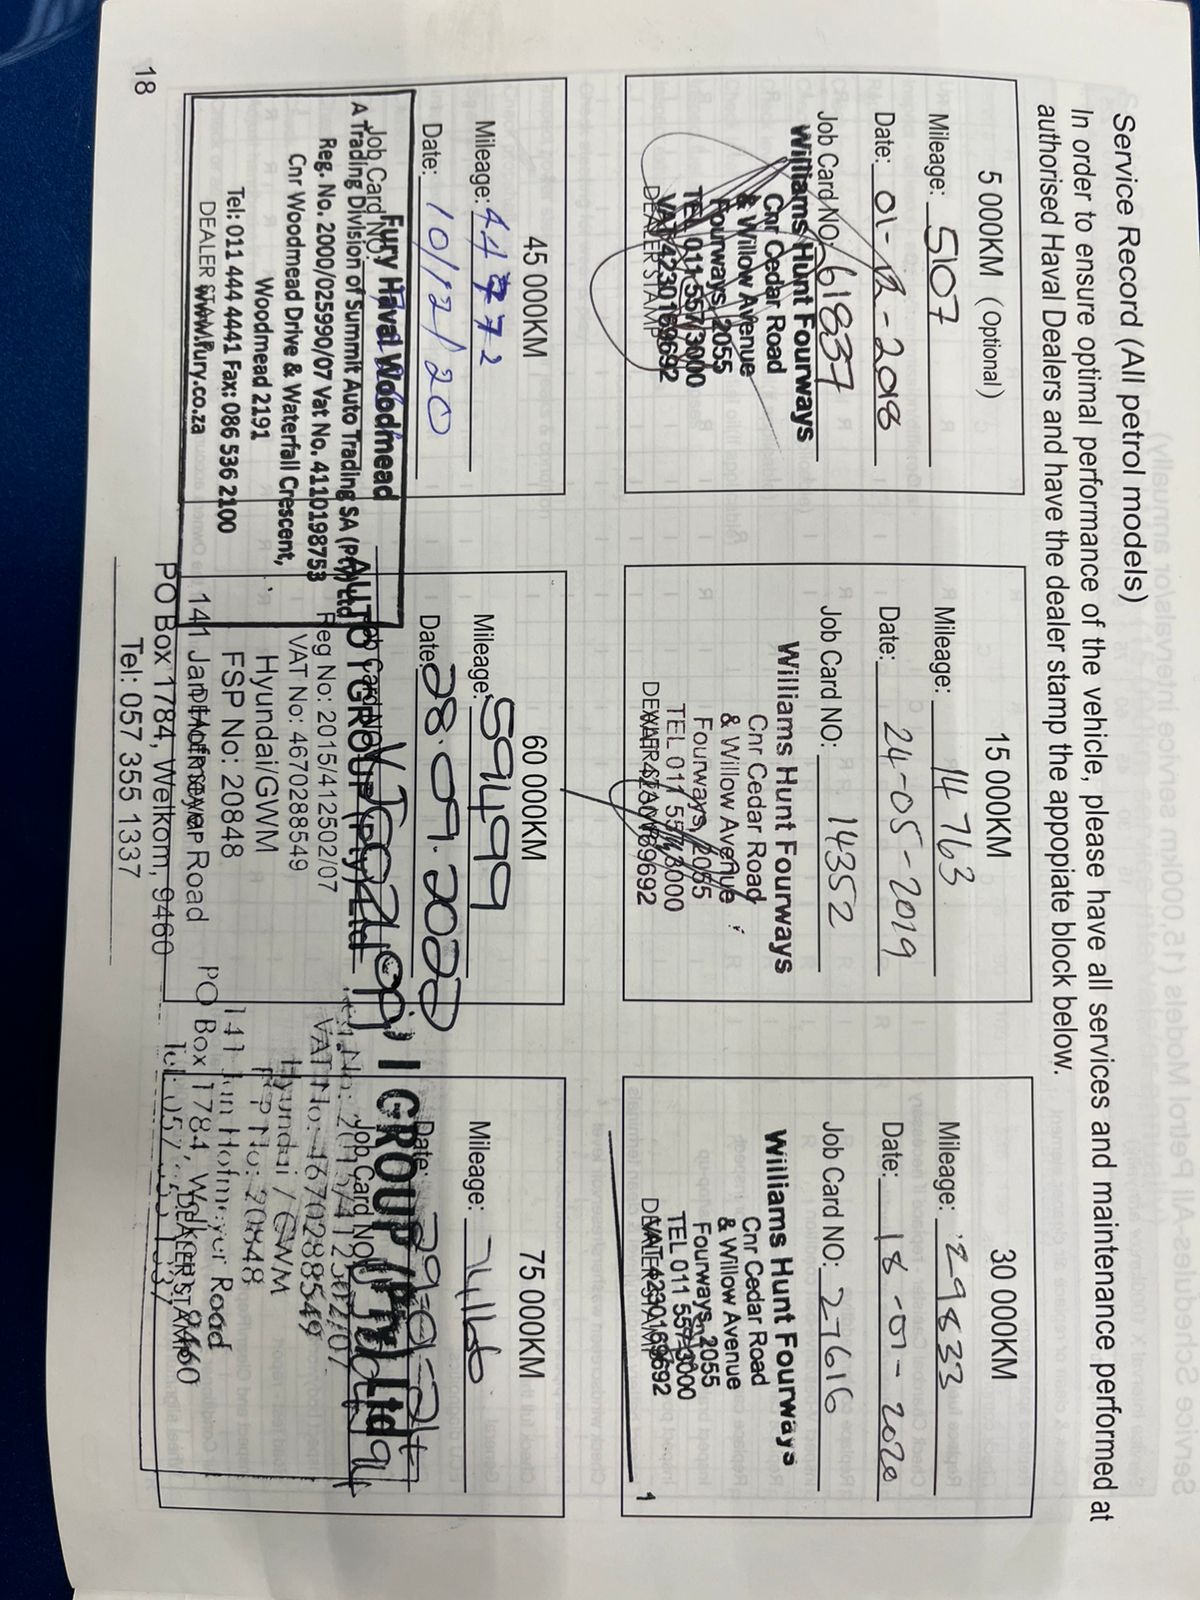 Service Record (All petrol models)
In order to ensure optimal performance of the vehicle, please have all services and maintenance performed at
authorised Haval Dealers and have the dealer stamp the appopiate block below.
5 000KM (Optional)
Mileage: 5107
Date: 01-12-2018
Job Card NO: 61837
Williams Hunt Fourways
Cnr Cedar Road
& Willow Avenue
Fourways, 2055
TEL 011 557 3000
VAT 4230169692
DEALER STAMP
15 000KM
Mileage: 14763
Date: 24-05-2019
Job Card NO: 14352
Williams Hunt Fourways
Cnr Cedar Road
& Willow Avenue
Fourways, 2055
TEL 011 557 3000
DEALER STAMP
30 000KM
Mileage: 29833
Date: 18-01-2020
Job Card NO: 27616
Williams Hunt Fourways
Cnr Cedar Road
& Willow Avenue
Fourways, 2055
TEL 011 557 3000
VAT 4230169692
DEALER STAMP
1
45 000KM
Mileage:
Date: 10/12/20
Job Card NO:
Fury Haval Woodmead
A Trading Division of Summit Auto Trading SA (Pty) Ltd
Reg. No. 2000/025990/07 Vat No. 4110198753
Cnr Woodmead Drive & Waterfall Crescent,
Woodmead 2191
Tel: 011 444 4441 Fax: 086 536 2100
www.fury.co.za
DEALER STAMP
60 000KM
Mileage: 59499
Date: 28.09.
Job Card No
AUTO I GROUP (Pty) Ltd
Reg No: 2015/412502/07
VAT No: 4670288549
Hyundai/GWM
FSP No: 20848
141 Jan Hofmeyer Road
DEALER STAMP
PO Box 1784, Welkom, 9460
Tel: 057 355 1337
75 000KM
Mileage:
Date:
Job Card NO
I GROUP (Pty) Ltd
2015/412502/07
VAT No: 4670288549
Hyundai / GWM
FSP No: 20848
141 Jan Hofmeyer Road
PO Box 1784, Welkom, 9460
DEALER STAMP
18